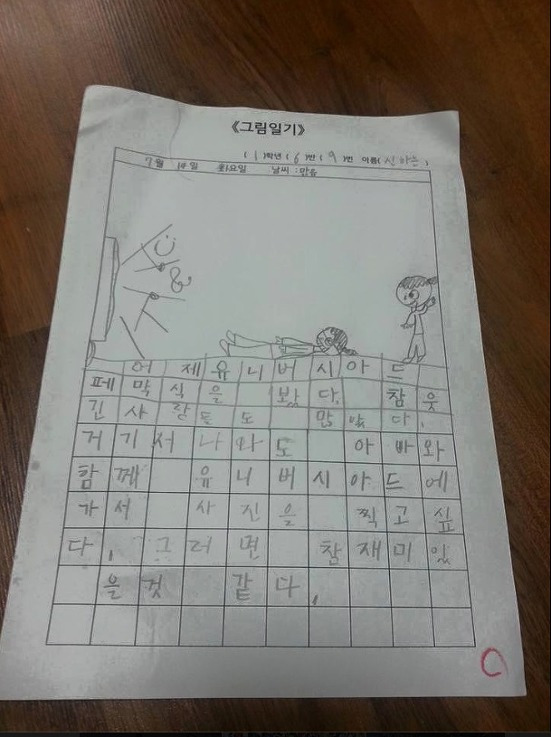 《그림일기》
(1)학년 (6)반 (9)번 이름(신아은)
7월 14일 화요일 날씨:맑음
어제 유니버시아드
페막식을 봤다. 참 웃
긴 사람들도 많았다.
거기서 나와도 아빠와
함께 유니버시아드에
가서 사진을 찍고 싶
다. 그러면 참 재미있
을것 같다.